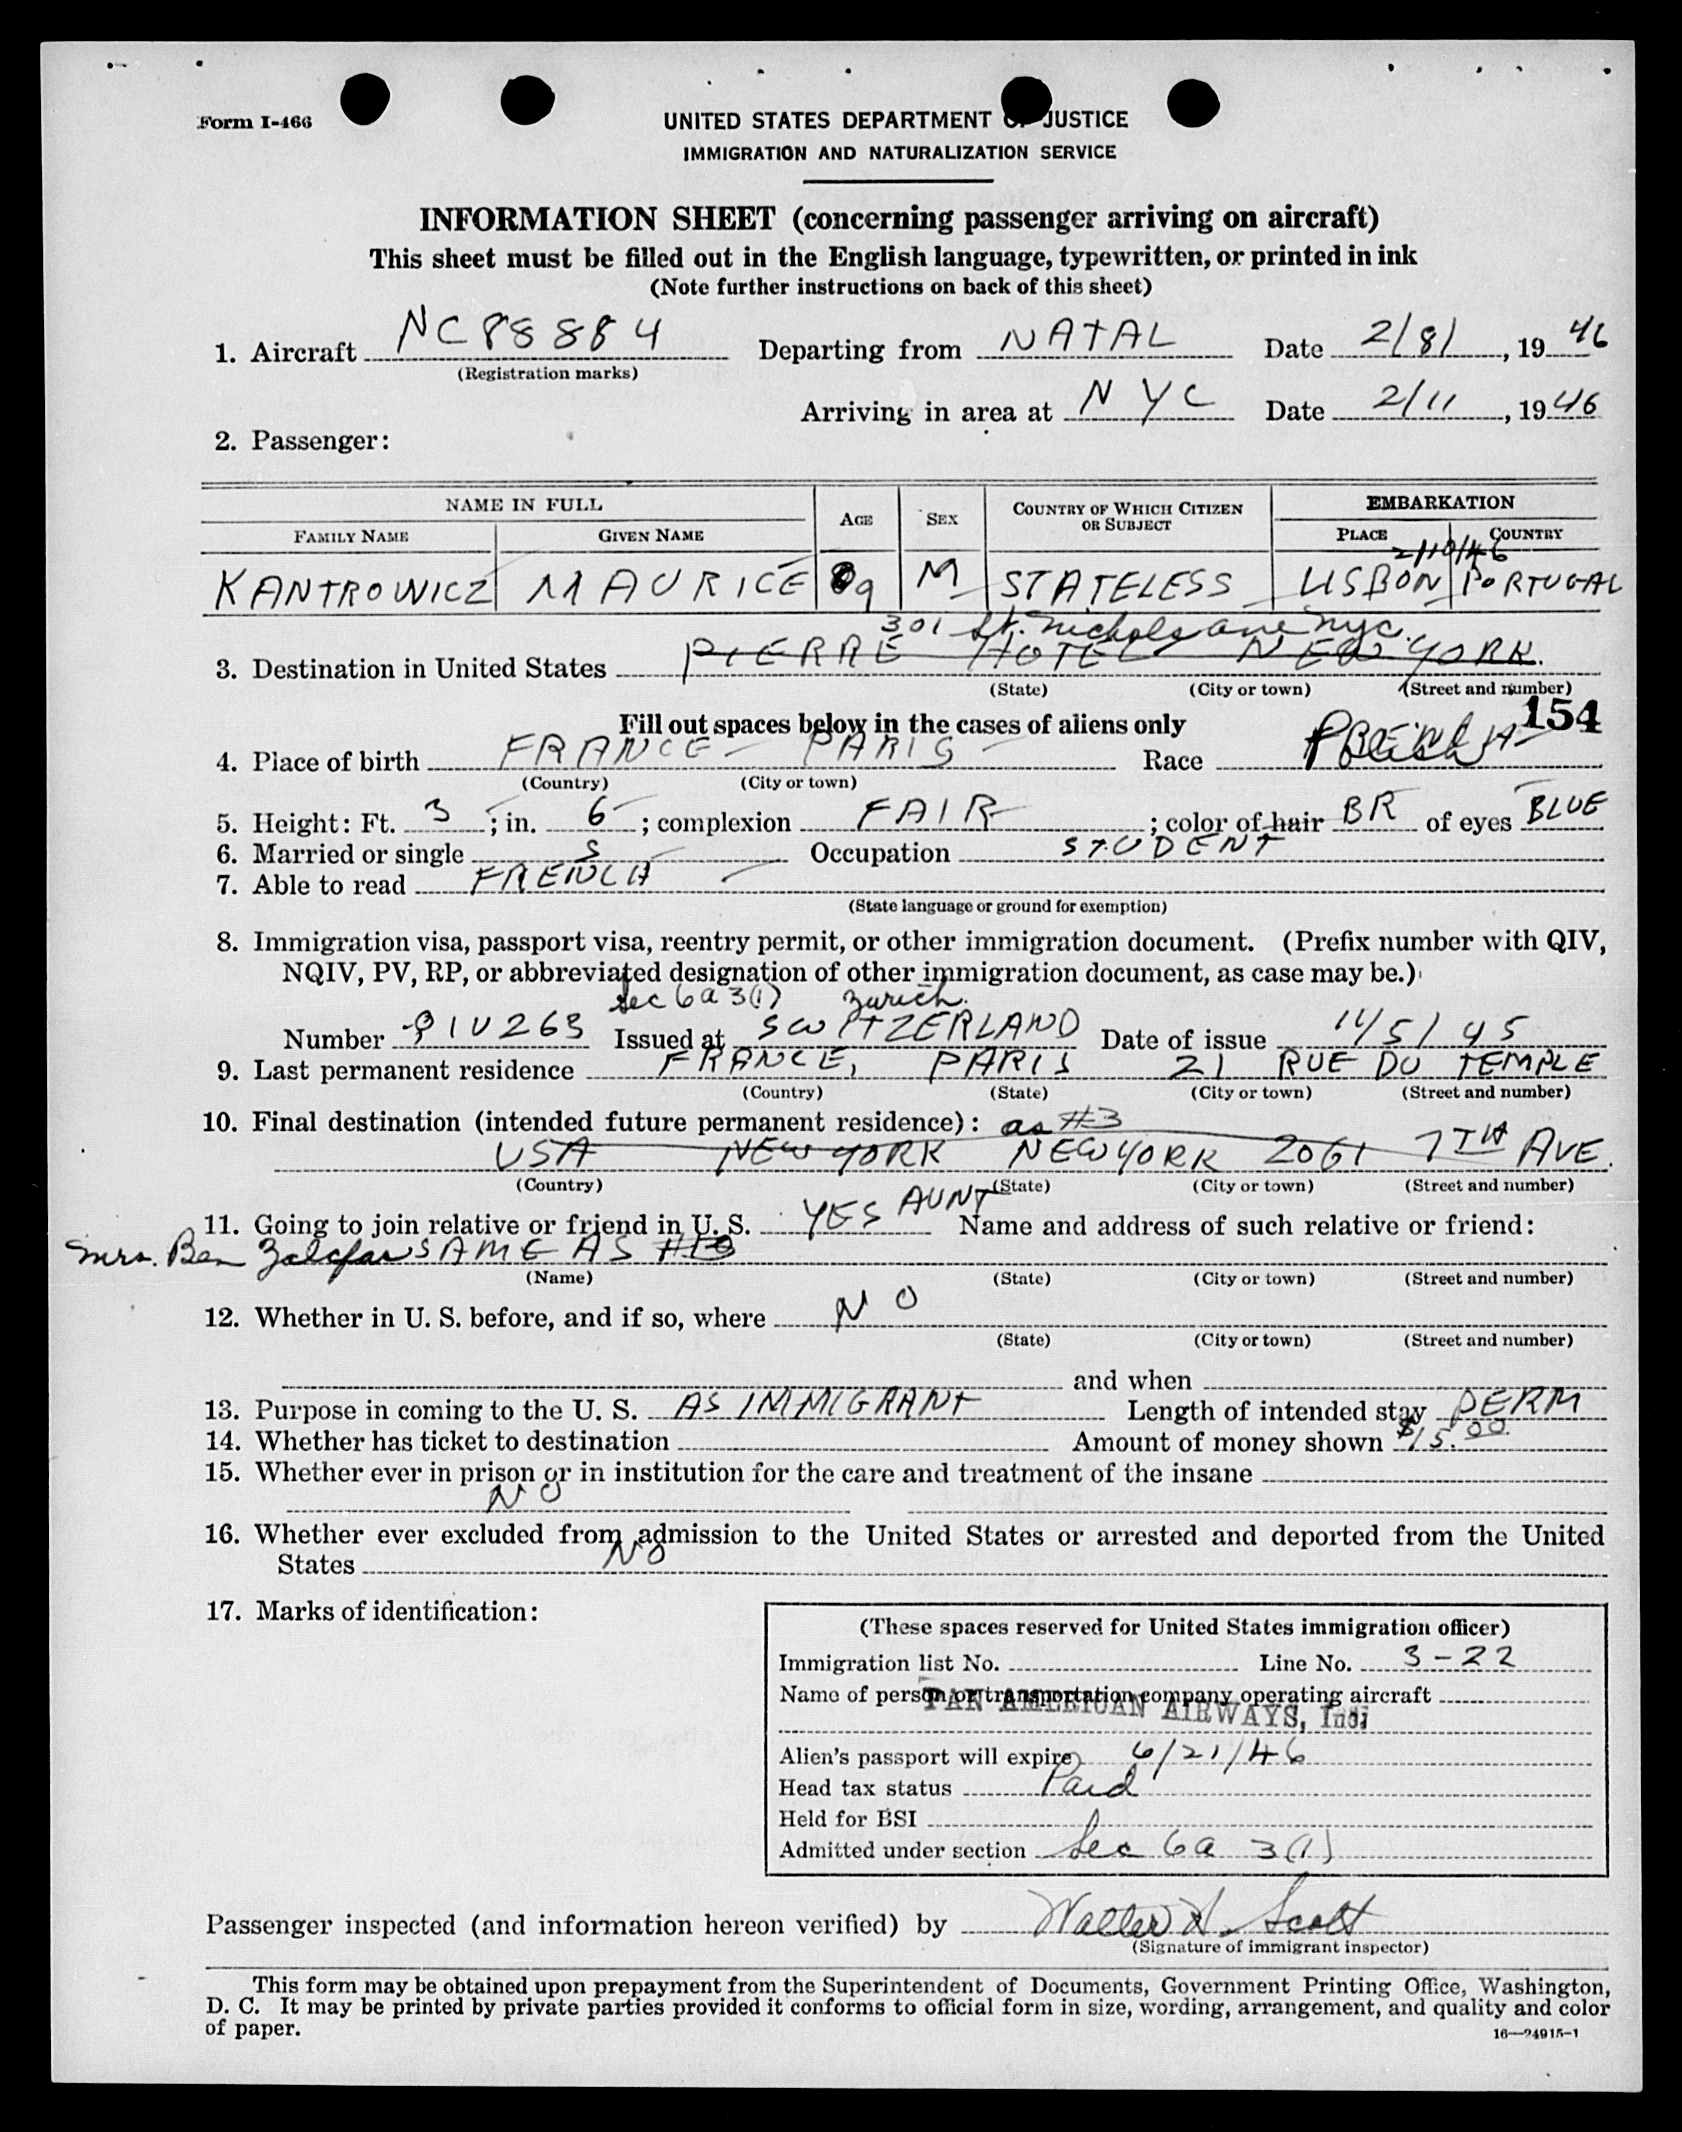 Form I-466
UNITED STATES DEPARTMENT OF JUSTICE
IMMIGRATION AND NATURALIZATION SERVICE
INFORMATION SHEET (concerning passenger arriving on aircraft)
This sheet must be filled out in the English language, typewritten, or printed in ink
(Note further instructions on back of this sheet)
1. Aircraft NC88884 Departing from NATAL Date 2/8/, 1946
(Registration marks)
Arriving in area at NYC Date 2/11, 1946
2. Passenger:
NAME IN FULL AGE SEX COUNTRY OF WHICH CITIZEN OR SUBJECT EMBARKATION
FAMILY NAME GIVEN NAME PLACE COUNTRY
2/10/46
KANTROWICZ MAURICE 9 M STATELESS LISBON PORTUGAL
301 St. Nichols ave nyc.
3. Destination in United States PIERRE HOTEL NEW YORK.
(State) (City or town) (Street and number)
154
Fill out spaces below in the cases of aliens only
4. Place of birth FRANCE - PARIS - Race FRENCH Polish
(Country) (City or town)
5. Height: Ft. 3; in. 6; complexion FAIR; color of hair BR of eyes BLUE
6. Married or single S Occupation STUDENT
7. Able to read FRENCH
(State language or ground for exemption)
8. Immigration visa, passport visa, reentry permit, or other immigration document. (Prefix number with QIV,
NQIV, PV, RP, or abbreviated designation of other immigration document, as case may be.)
Sec 6a 3(1) Zurich.
Number QIV263 Issued at SWITZERLAND Date of issue 11/5/45
9. Last permanent residence FRANCE, PARIS 21 RUE DU TEMPLE
(Country) (State) (City or town) (Street and number)
10. Final destination (intended future permanent residence): as #3
USA NEW YORK NEW YORK 2061 7TH AVE.
(Country) (State) (City or town) (Street and number)
11. Going to join relative or friend in U. S. YES AUNT Name and address of such relative or friend:
Mrs. Ben SAME AS #10
(Name) (State) (City or town) (Street and number)
12. Whether in U. S. before, and if so, where NO
(State) (City or town) (Street and number)
and when
13. Purpose in coming to the U. S. AS IMMIGRANT Length of intended stay PERM
14. Whether has ticket to destination Amount of money shown $15.00
15. Whether ever in prison or in institution for the care and treatment of the insane
NO
16. Whether ever excluded from admission to the United States or arrested and deported from the United
States NO
17. Marks of identification:
(These spaces reserved for United States immigration officer)
Immigration list No. Line No. 3-22
Name of person or transportation company operating aircraft
PAN AMERICAN AIRWAYS, Inc.
Alien's passport will expire 6/21/46
Head tax status Paid
Held for BSI
Admitted under section Sec 6a 3(1)
Passenger inspected (and information hereon verified) by Walter H. Scott
(Signature of immigrant inspector)
This form may be obtained upon prepayment from the Superintendent of Documents, Government Printing Office, Washington,
D. C. It may be printed by private parties provided it conforms to official form in size, wording, arrangement, and quality and color
of paper.
16—24915-1